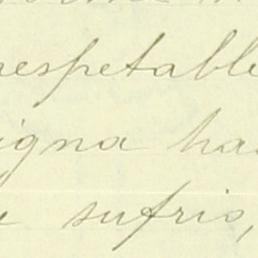 respetable
igna ha
sufrio,